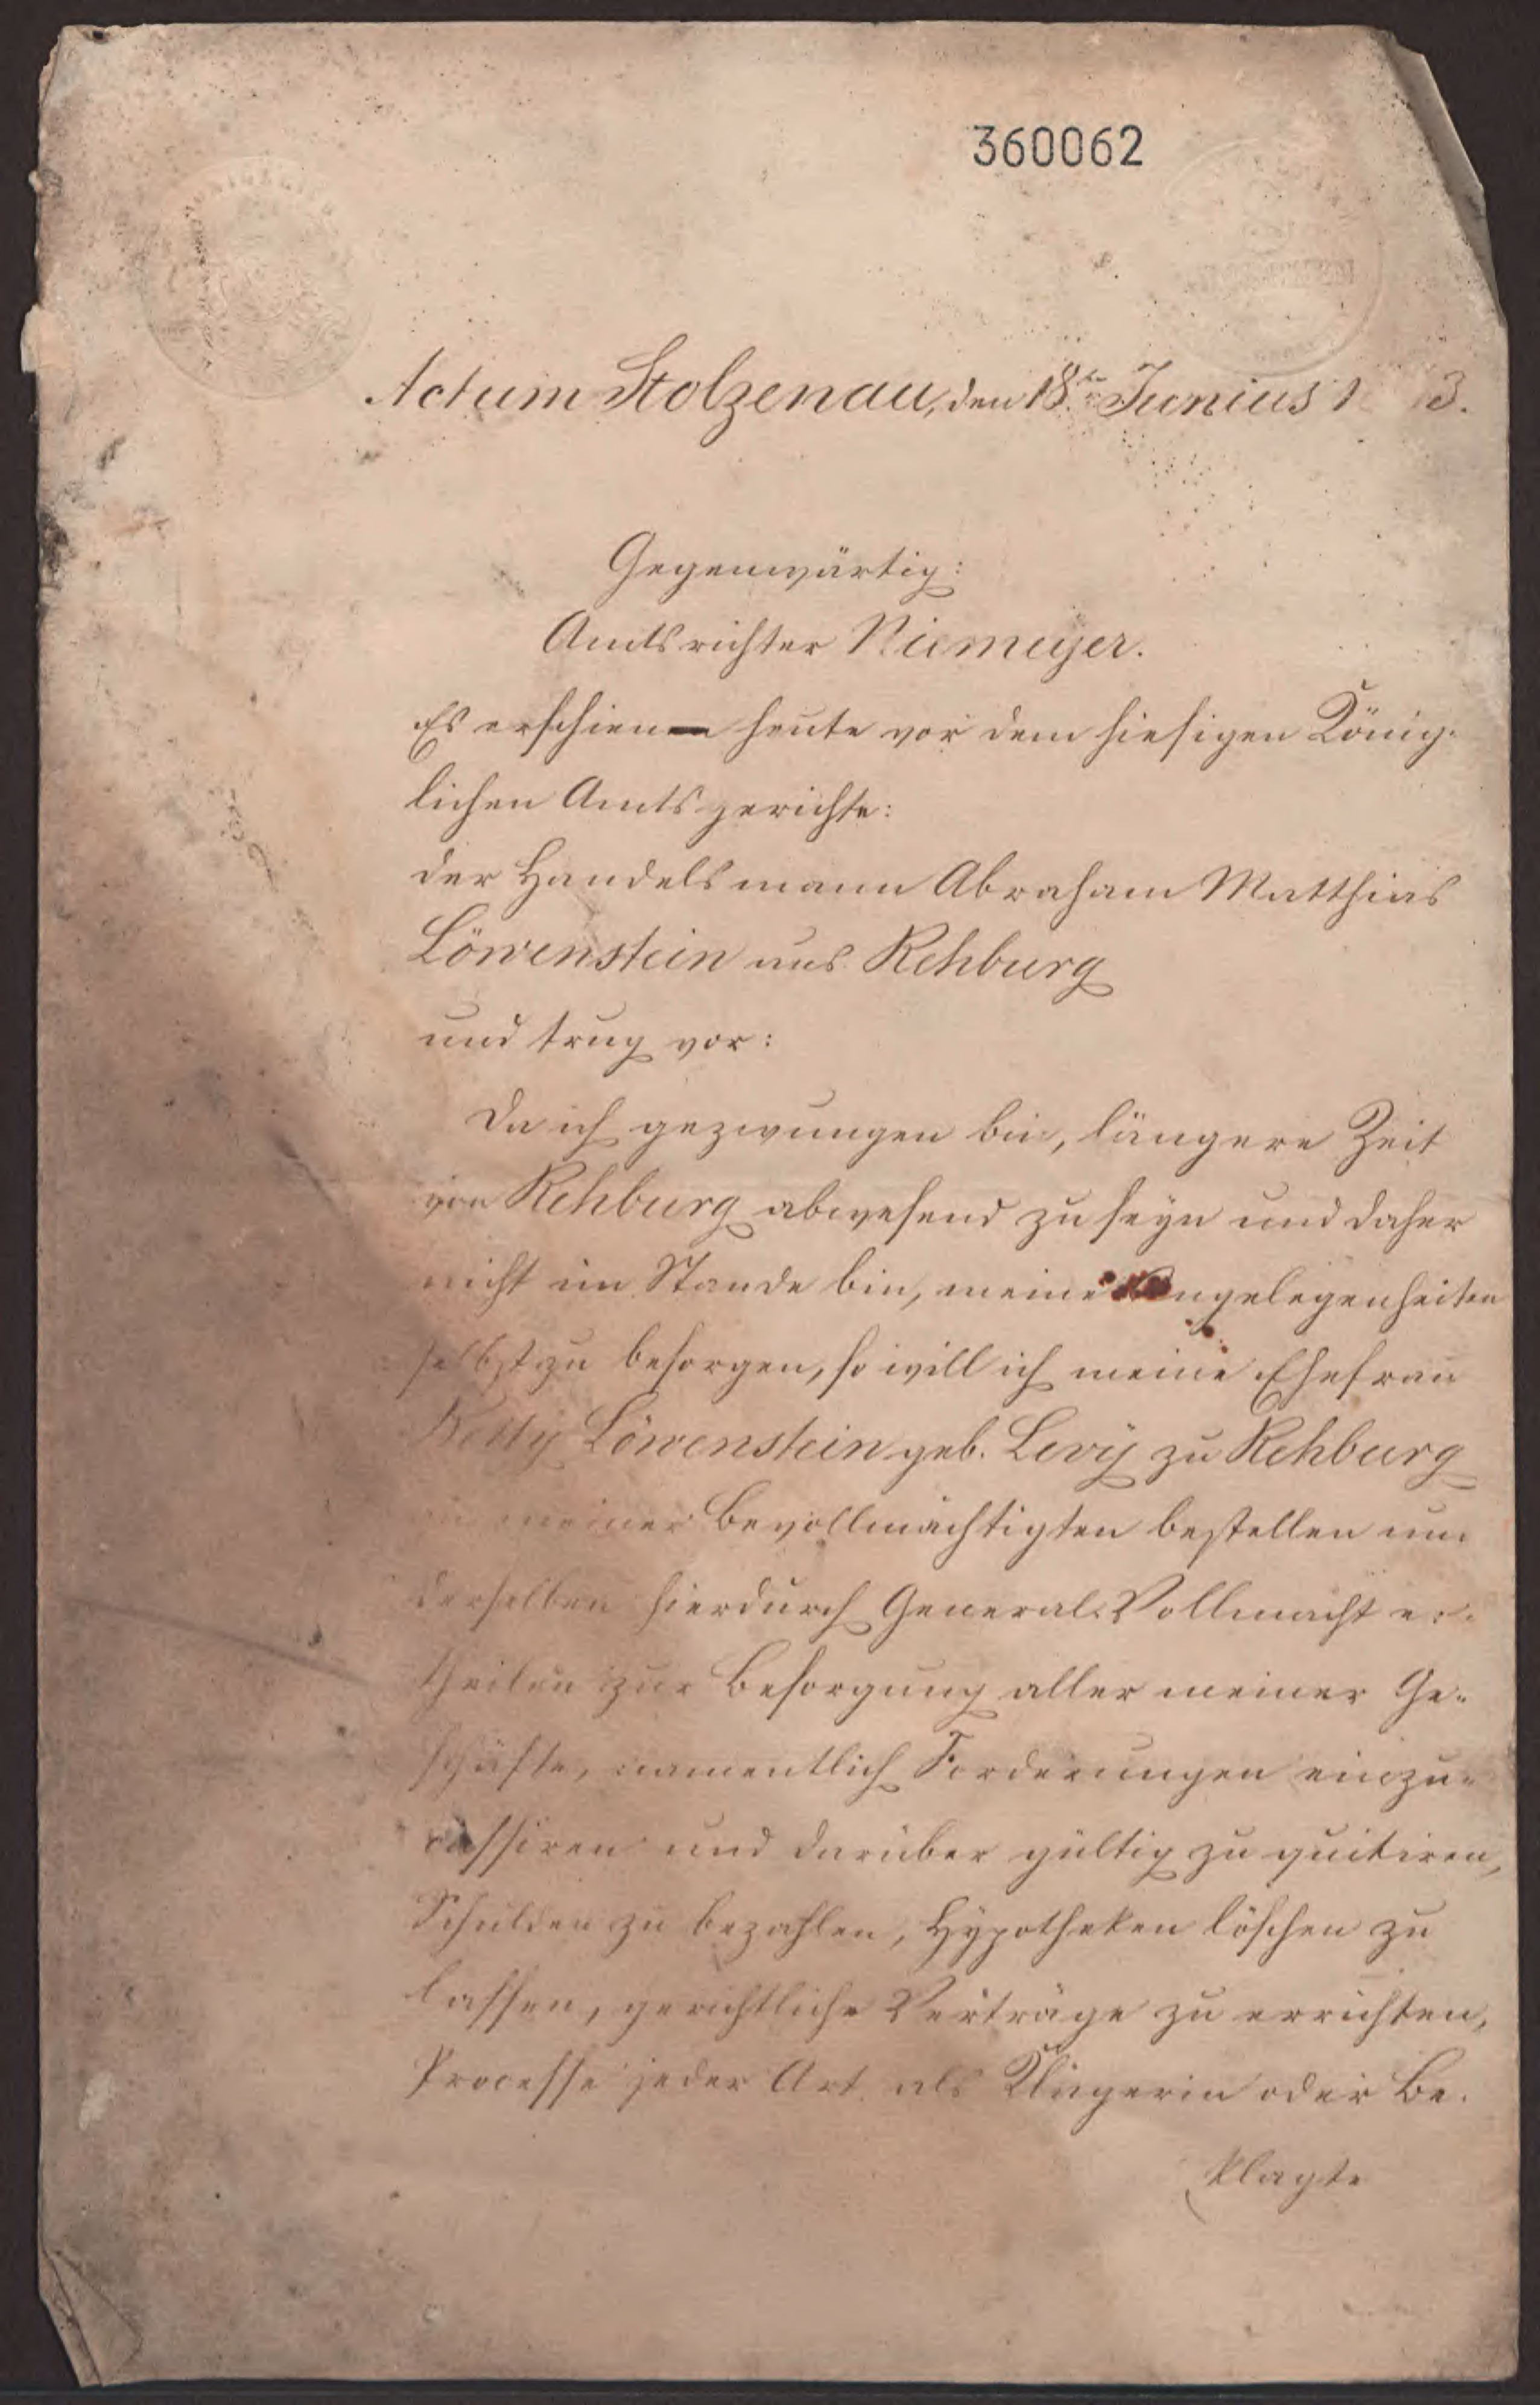 360062
Actum Stolzenau, den 18ten Junius 1 3.
Gegenwärtig:
Amtsrichter Niemeyer.
Es erschien heute vor dem hiesigen König-
lichen Amtsgerichte:
der Handelsmann Abraham Matthias
Löwenstein aus Rehburg
und trug vor:
Da ich gezwungen bin, längere Zeit
von Rehburg abwesend zu seyn und daher
nicht im Stande bin, meine Angelegenheiten
selbst zu besorgen, so will ich meine Ehefrau
Löwenstein geb. Levy zu Rehburg
meiner Bevollmächtigten bestellen und
derselben hierdurch General-Vollmacht er-
theilen zur Besorgung aller meiner Ge-
schäfte, namentlich Forderungen einzu-
cassiren und darüber gültig zu quitiren,
Schulden zu bezahlen, Hypotheken löschen zu
lassen, gerichtliche Verträge zu errichten,
Processe jeder Art als Klägerin oder Be-
klagte